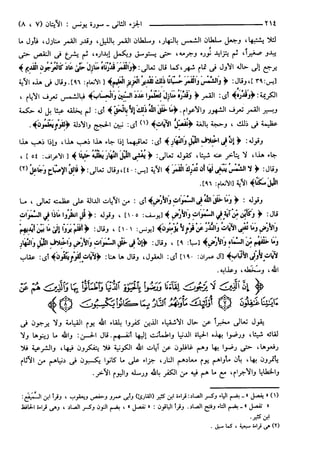 ٢١٤ الجزء الثانى - سورة يونس : الآيتان (٧ ، ٨)
لئلا يشتبها، وجعل سلطان الشمس بالنهار، وسلطان القمر بالليل، وقدر القمر منازل، فأول ما
يبدو صغيراً، ثم يتزايد نُوره وجرمه، حتى يستوسق ويكمل إبداره، ثم يشرع فى النقص حتى
يرجع إلى حاله الأول فى تمام شهر، كما قال تعالى: ﴿وَالْقَمَرَ قَدَّرْنَاهُ مَنَازِلَ حَتَّىٰ عَادَ كَالْعُرْجُونِ الْقَدِيمِ ﴾
[يس:٣٩]، وقال: ﴿ وَالشَّمْسَ وَالْقَمَرَ حُسْبَانًا ذَٰلِكَ تَقْدِيرُ الْعَزِيزِ الْعَلِيمِ ﴾ [الأنعام: ٩٦]. وقال فى هذه الآية
الكريمة: ﴿وَقَدَّرَهُ﴾ أى: القمر ﴿ وَقَدَّرَهُ مَنَازِلَ لِتَعْلَمُوا عَدَدَ السِّنِينَ وَالْحِسَابَ﴾ فبالشمس تعرف الأيام ،
وبسير القمر تعرف الشهور والأعوام. ﴿مَا خَلَقَ اللَّهُ ذَٰلِكَ إِلَّا بِالْحَقِّ﴾ أى: لم يخلقه عبثا بل له حكمة
عظيمة فى ذلك ، وحجة بالغة ﴿نُفَصِّلُ الْآيَاتِ﴾ (١) أى : نبين الحجج والأدلة ﴿لِقَوْمٍ يَعْلَمُونَ﴾.
وقوله: ﴿ إِنَّ فِي اخْتِلَافِ اللَّيْلِ وَالنَّهَارِ ﴾ أى: تعاقبهما إذا جاء هذا ذهب هذا، وإذا ذهب هذا
جاء هذا، لا يتأخر عنه شيئا، كقوله تعالى: ﴿ يُغْشِي اللَّيْلَ النَّهَارَ يَطْلُبُهُ حَثِيثًا ﴾ [الأعراف: ٥٤] ،
وقال: ﴿لا الشَّمْسُ يَنبَغِي لَهَا أَن تُدْرِكَ الْقَمَرَ ﴾ الآية [يس: ٤٠]، وقال تعالى: ﴿ فَالِقُ الْإِصْبَاحِ وَجَاعِلُ (٢)
اللَّيْلِ سَكَنًا﴾ الآية [الأنعام: ٩٦].
وقوله : ﴿ وَمَا خَلَقَ اللَّهُ فِي السَّمَوَاتِ وَالْأَرْضِ ﴾ أى : من الآيات الدالة على عظمته تعالى ، كما
قال: ﴿ وَكَأَيِّن مِّنْ آيَةٍ فِي السَّمَوَاتِ وَالْأَرْضِ ﴾ [يوسف: ١٠٥] ، وقوله: ﴿ قُلِ انظُرُوا مَاذَا فِي السَّمَوَاتِ
وَالْأَرْضِ وَمَا تُغْنِي الْآيَاتُ وَالنُّذُرُ عَن قَوْمٍ لَّا يُؤْمِنُونَ﴾ [يونس: ١٠١] ، وقال: ﴿ أَفَلَمْ يَرَوْا إِلَىٰ مَا بَيْنَ أَيْدِيهِمْ
وَمَا خَلْفَهُم مِّنَ السَّمَاءِ وَالْأَرْضِ﴾ [سبأ: ٩] ، وقال: ﴿إِنَّ فِي خَلْقِ السَّمَوَاتِ وَالْأَرْضِ وَاخْتِلَافِ اللَّيْلِ وَالنَّهَارِ
لَآيَاتٍ لِّأُولِي الْأَلْبَابِ﴾ [آل عمران: ١٩٠] أى: العقول، وقال ها هنا: ﴿لَآيَاتٍ لِّقَوْمٍ يَتَّقُونَ﴾ أى: عقاب
الله، وسخطه، وعذابه.
﴿ إِنَّ الَّذِينَ لَا يَرْجُونَ لِقَاءَنَا وَرَضُوا بِالْحَيَاةِ الدُّنْيَا وَاطْمَأَنُّوا بِهَا وَالَّذِينَ هُمْ عَنْ
آيَاتِنَا غَافِلُونَ ۝ أُولَٰئِكَ مَأْوَاهُمُ النَّارُ بِمَا كَانُوا يَكْسِبُونَ ۝ ﴾
يقول تعالى مخبراً عن حال الأشقياء الذين كفروا بلقاء الله يوم القيامة ولا يرجون فى
لقائه شيئا، ورضوا بهذه الحياة الدنيا واطمأنت إليها أنفسهم. قال الحسن: والله ما زينوها ولا
رفعوها، حتى رضوا بها وهم غافلون عن آيات الله الكونية فلا يتفكرون فيها، والشرعية فلا
يأتمرون بها، بأن مأواهم يوم معادهم النار، جزاء على ما كانوا يكسبون فى دنياهم من الآثام
والخطايا والإجرام، مع ما هم فيه من الكفر بالله ورسله واليوم الآخر.
(١) « يفصل » - بضم الياء وكسر الصاد: قراءة ابن كثير (القارئ) وأبى عمرو وحفص ويعقوب ، وقرأ ابن السَّمَيْفَع:
« تفصل » - بضم التاء وفتح الصاد. وقرأ الباقون : « نفصل » ، بضم النون وكسر الصاد ، وهى قراءة الحافظ
ابن كثير.
(٢) هى قراءة سبعية ، كما سبق .